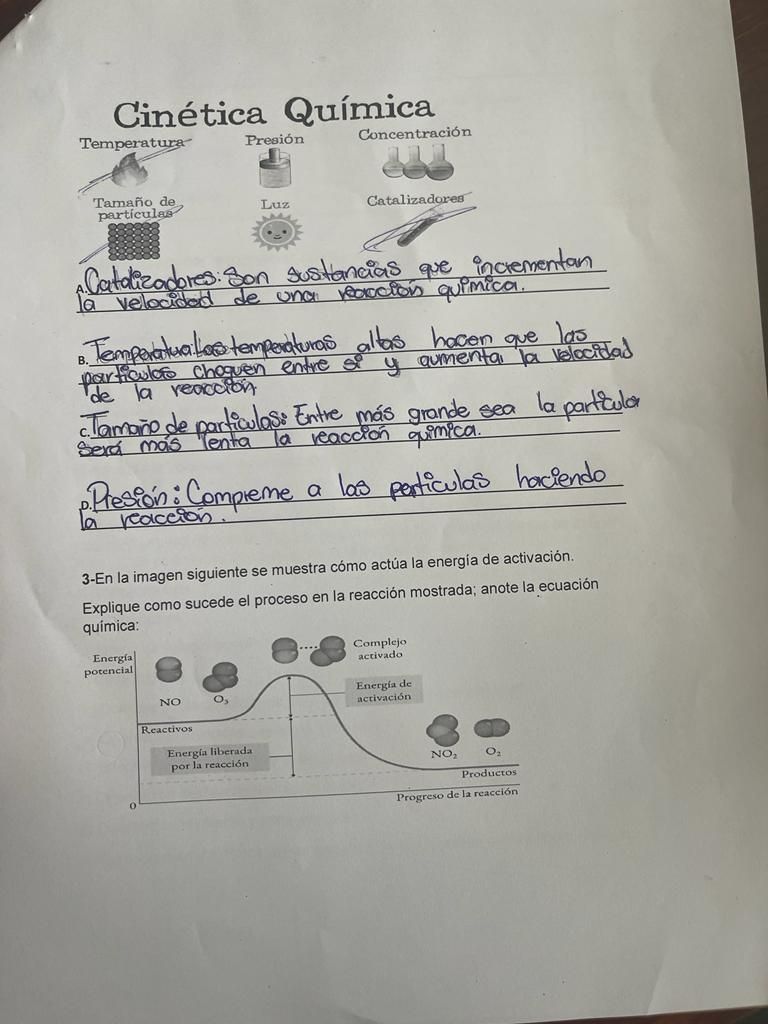 Cinética Química
Temperatura
Presión
Concentración
Tamaño de
partículas
Luz
Catalizadores
A. Catalizadores: Son sustancias que incrementan
la velocidad de una reacción química.
B. Temperatura: Las temperaturas altas hacen que las
partículas choquen entre sí y aumenta la velocidad
de la reacción
C. Tamaño de partículas: Entre más grande sea la partícula
Será más lenta la reacción química.
D. Presión: Compreme a las partículas haciendo
la reacción.
3-En la imagen siguiente se muestra cómo actúa la energía de activación.
Explique como sucede el proceso en la reacción mostrada; anote la ecuación
química:
Energía
potencial
NO
O₃
Complejo
activado
Energía de
activación
Reactivos
Energía liberada
por la reacción
NO₂
O₂
Productos
0
Progreso de la reacción